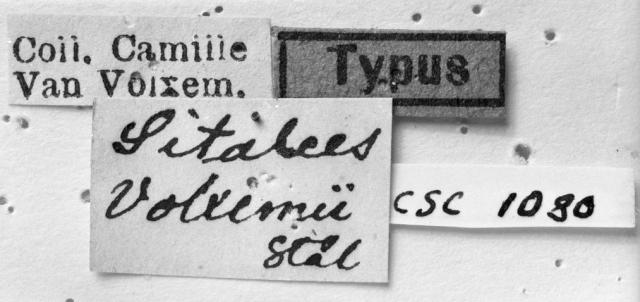 Coll. Camille
Van Volxem.
Typus
Sitalces
Volxemii
Stål
CSC 1090